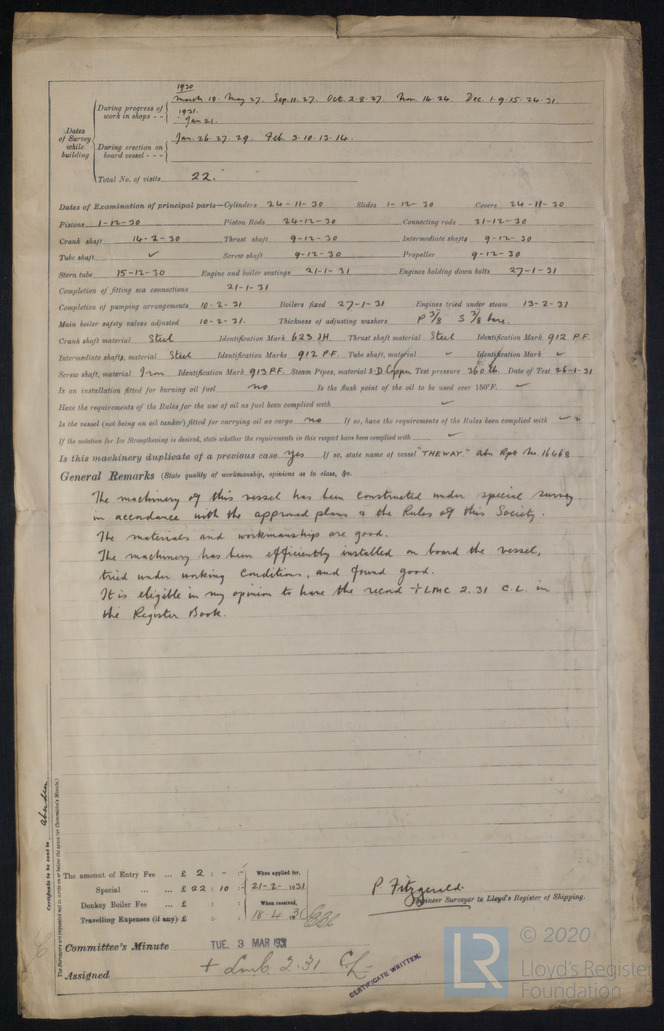 1930
During progress of work in shops - - March 18. May 27. Sep. 11. 27. Oct. 2. 8. 27. Nov. 14. 24. Dec. 1. 9. 15. 24. 31.
1931.
Jan 21.
Dates of Survey while building
During erection on board vessel - - - Jan. 26. 27. 29. Feb. 3. 10. 13. 14.
Total No. of visits 22.
Dates of Examination of principal parts—Cylinders 24-11-30 Slides 1-12-30 Covers 24-11-30
Pistons 1-12-30 Piston Rods 24-12-30 Connecting rods 31-12-30
Crank shaft 14-2-30 Thrust shaft 9-12-30 Intermediate shafts 9-12-30
Tube shaft ✓ Screw shaft 9-12-30 Propeller 9-12-30
Stern tube 15-12-30 Engine and boiler seatings 21-1-31 Engines holding down bolts 27-1-31
Completion of fitting sea connections 21-1-31
Completion of pumping arrangements 10-2-31 Boilers fixed 27-1-31 Engines tried under steam 13-2-31
Main boiler safety valves adjusted 10-2-31. Thickness of adjusting washers P 3/8 S 3/8 bare.
Crank shaft material Steel Identification Mark 623 JH Thrust shaft material Steel Identification Mark 912 P.F.
Intermediate shafts, material Steel Identification Marks 912 P.F. Tube shaft, material ✓ Identification Mark ✓
Screw shaft, material Iron Identification Mark 913 P.F. Steam Pipes, material S.D Copper Test pressure 360 lb. Date of Test 26-1-31
Is an installation fitted for burning oil fuel no Is the flash point of the oil to be used over 150°F. ✓
Have the requirements of the Rules for the use of oil as fuel been complied with ✓
Is the vessel (not being an oil tanker) fitted for carrying oil as cargo no If so, have the requirements of the Rules been complied with ✓
If the notation for Ice Strengthening is desired, state whether the requirements in this respect have been complied with ✓
Is this machinery duplicate of a previous case yes If so, state name of vessel "THEWAY." Abn Rpt No. 16468
General Remarks (State quality of workmanship, opinions as to class, &c.
The machinery of this vessel has been constructed under special survey
in accordance with the approved plans & the Rules of this Society.
The materials and workmanship are good.
The machinery has been efficiently installed on board the vessel,
tried under working conditions, and found good.
It is eligible in my opinion to have the record + LMC 2.31 C.L. in
the Register Book.
Certificate to be sent to Aberdeen
(The Surveyors are requested not to write on or below the space for Committee's Minute.)
The amount of Entry Fee ... £ 2 : - : When applied for,
Special ... ... £ 22 : 10 : 21-2-1931
Donkey Boiler Fee ... £ : : When received,
Travelling Expenses (if any) £ : : 18.4.19
P Fitzgerald.
Engineer Surveyor to Lloyd's Register of Shipping.
Committee's Minute TUE. 3 MAR 1931
Assigned + Lmc 2.31 CL
CERTIFICATE WRITTEN.
LR © 2020
Lloyd's Register
Foundation